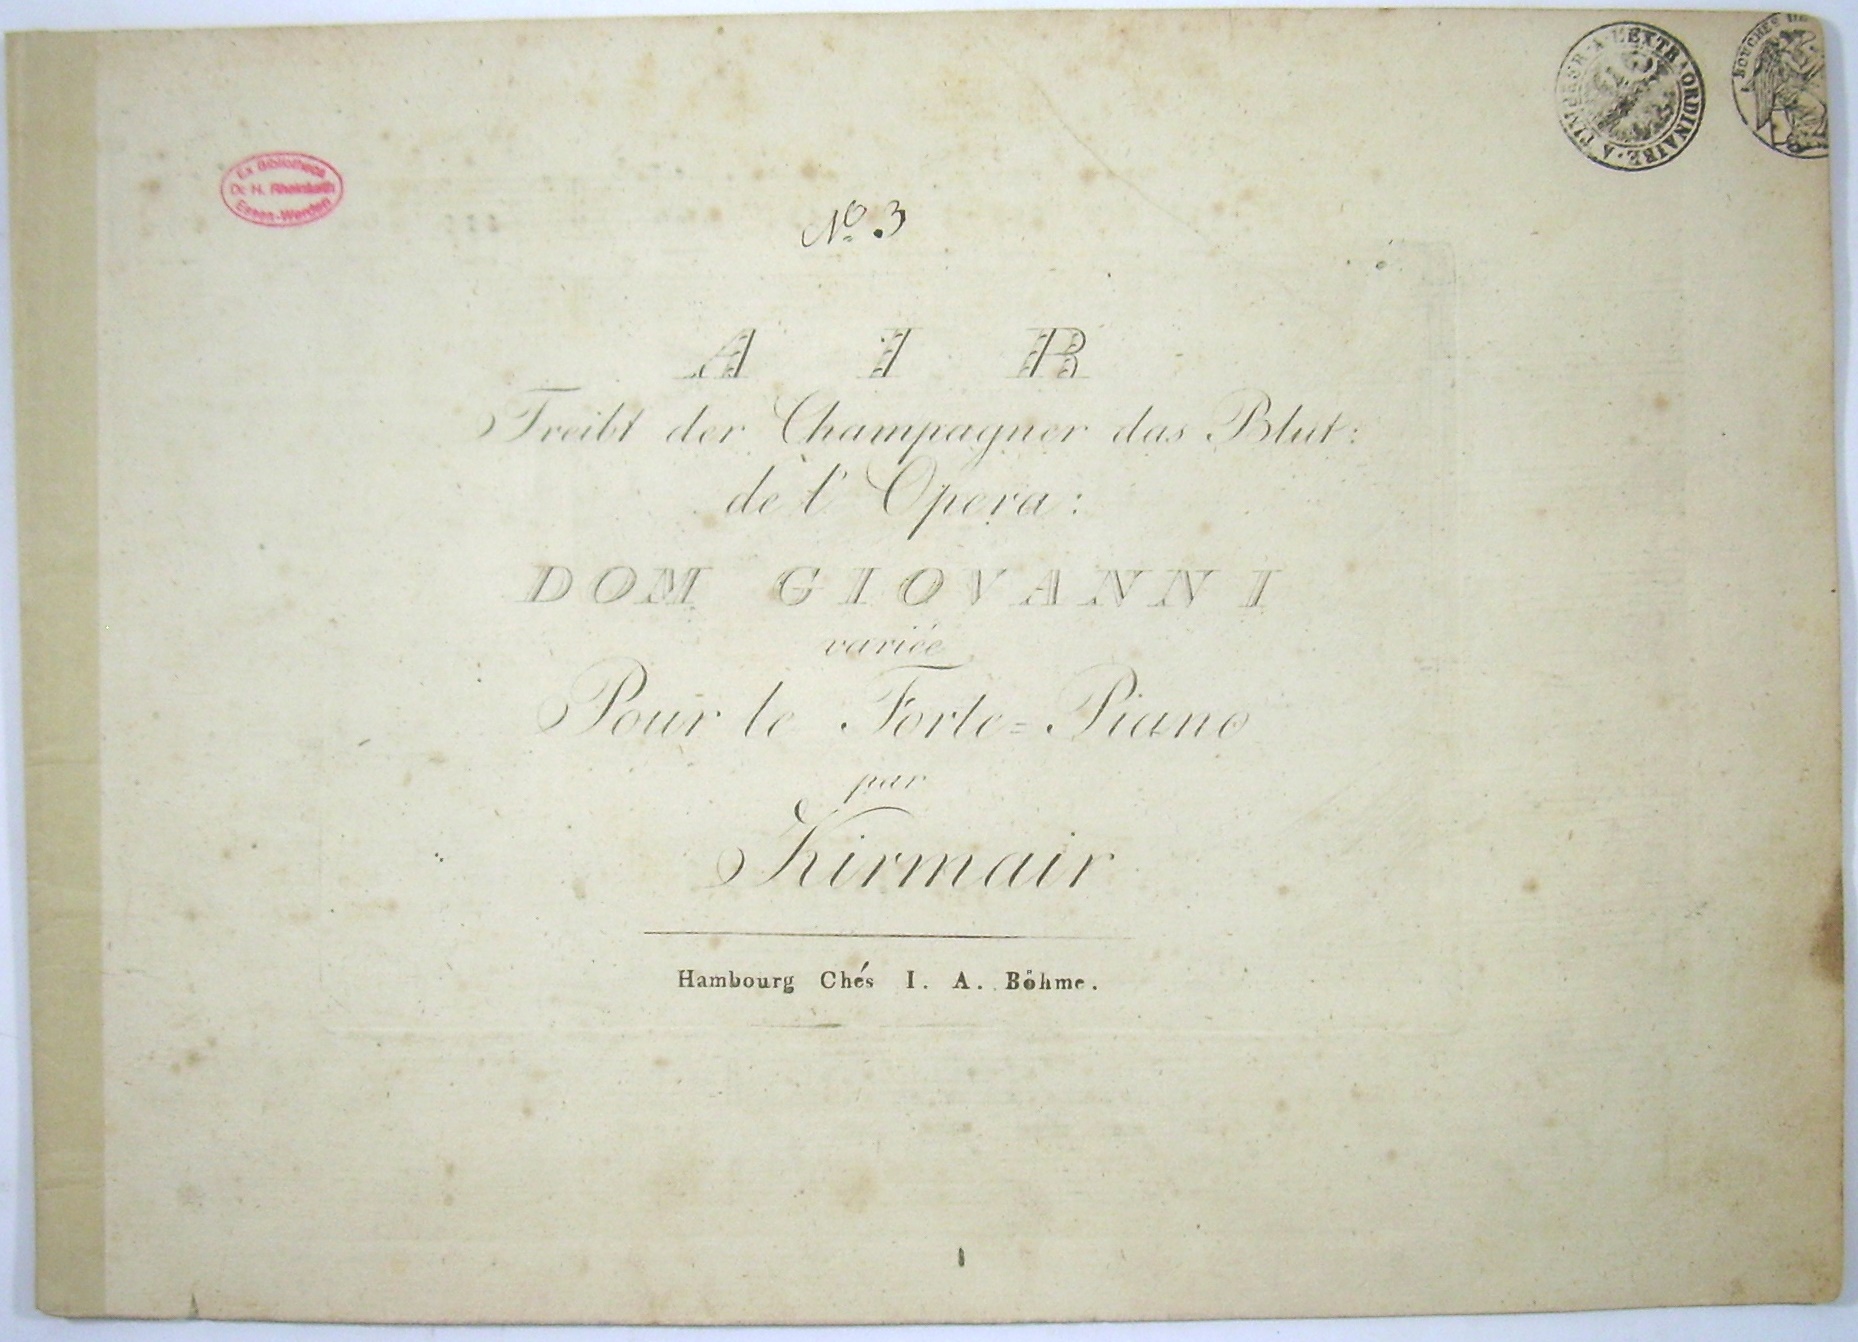 A TIMBRER A L'EXTRAORDINAIRE
BOUCHES DE
Ex Bibliotheca
Dr. H. Rheinfurth
Essen-Werden
No. 3
AIR
Treibt der Champagner das Blut:
de l'Opera:
DOM GIOVANNI
variée
Pour le Forte=Piano
par
Kirmair
Hambourg Chés I. A. Böhme.